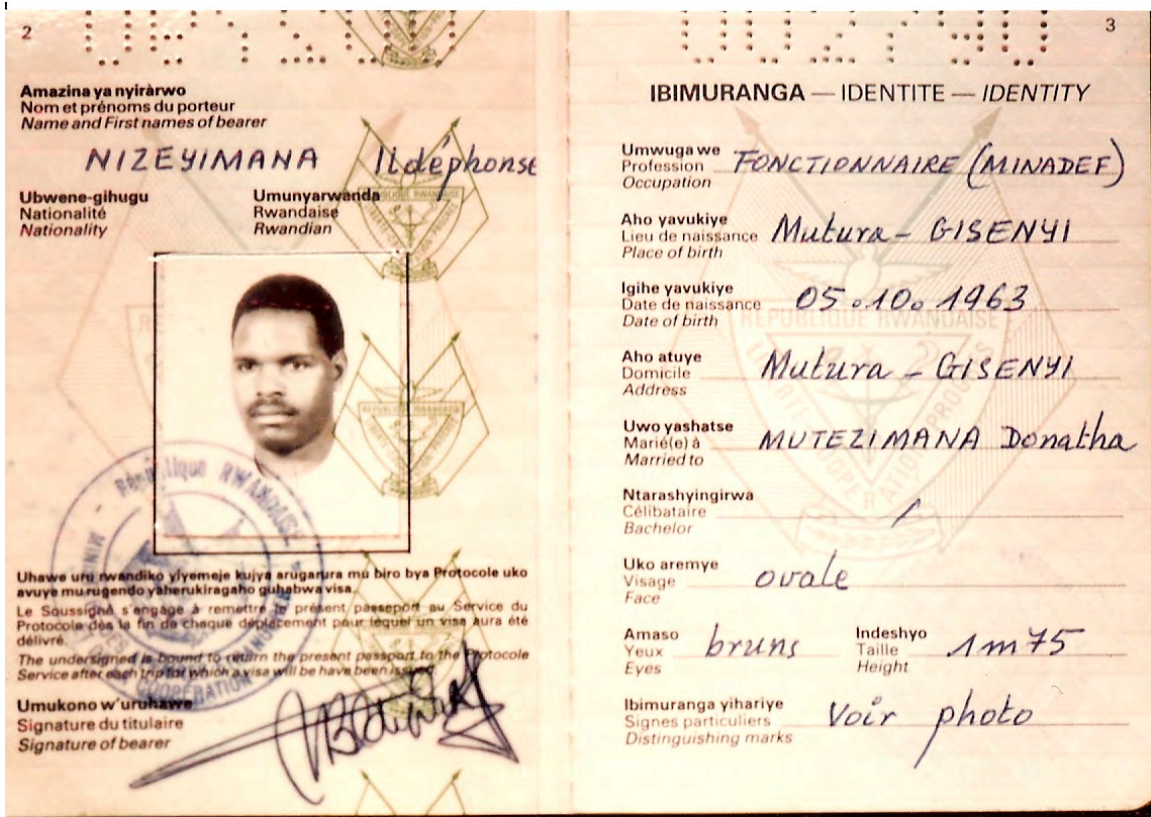 2
Amazina ya nyiràrwo
Nom et prénoms du porteur
Name and First names of bearer
NIZEYIMANA Ildéphonse
Ubwene-gihugu Umunyarwanda
Nationalité Rwandaise
Nationality Rwandian
REPUBLIQUE RWANDAISE
République RWANDAISE
COOPERATION
Uhawe uru rwandiko yiyemeje kujya arugarura mu biro bya Protocole uko
avuye mu rugendo yaherukiragaho guhabwa visa.
Le Soussigné s'engage à remettre le présent passeport au Service du
Protocole dès la fin de chaque déplacement pour lequel un visa aura été
délivré.
The undersigned is bound to return the present passport to the Protocole
Service after each trip for which a visa will be have been issued
Umukono w'uruhawe
Signature du titulaire
Signature of bearer
3
IBIMURANGA — IDENTITE — IDENTITY
Umwuga we
Profession FONCTIONNAIRE (MINADEF)
Occupation
Aho yavukiye
Lieu de naissance Mutura - GISENYI
Place of birth
Igihe yavukiye
Date de naissance 05.10.1963
Date of birth
REPUBLIQUE RWANDAISE
Aho atuye
Domicile Mutura - GISENYI
Address
Uwo yashatse
Marié(e) à MUTEZIMANA Donatha
Married to
Ntarashyingirwa
Célibataire /
Bachelor
Uko aremye
Visage ovale
Face
Amaso Indeshyo
Yeux bruns Taille 1m75
Eyes Height
Ibimuranga yihariye
Signes particuliers Voir photo
Distinguishing marks